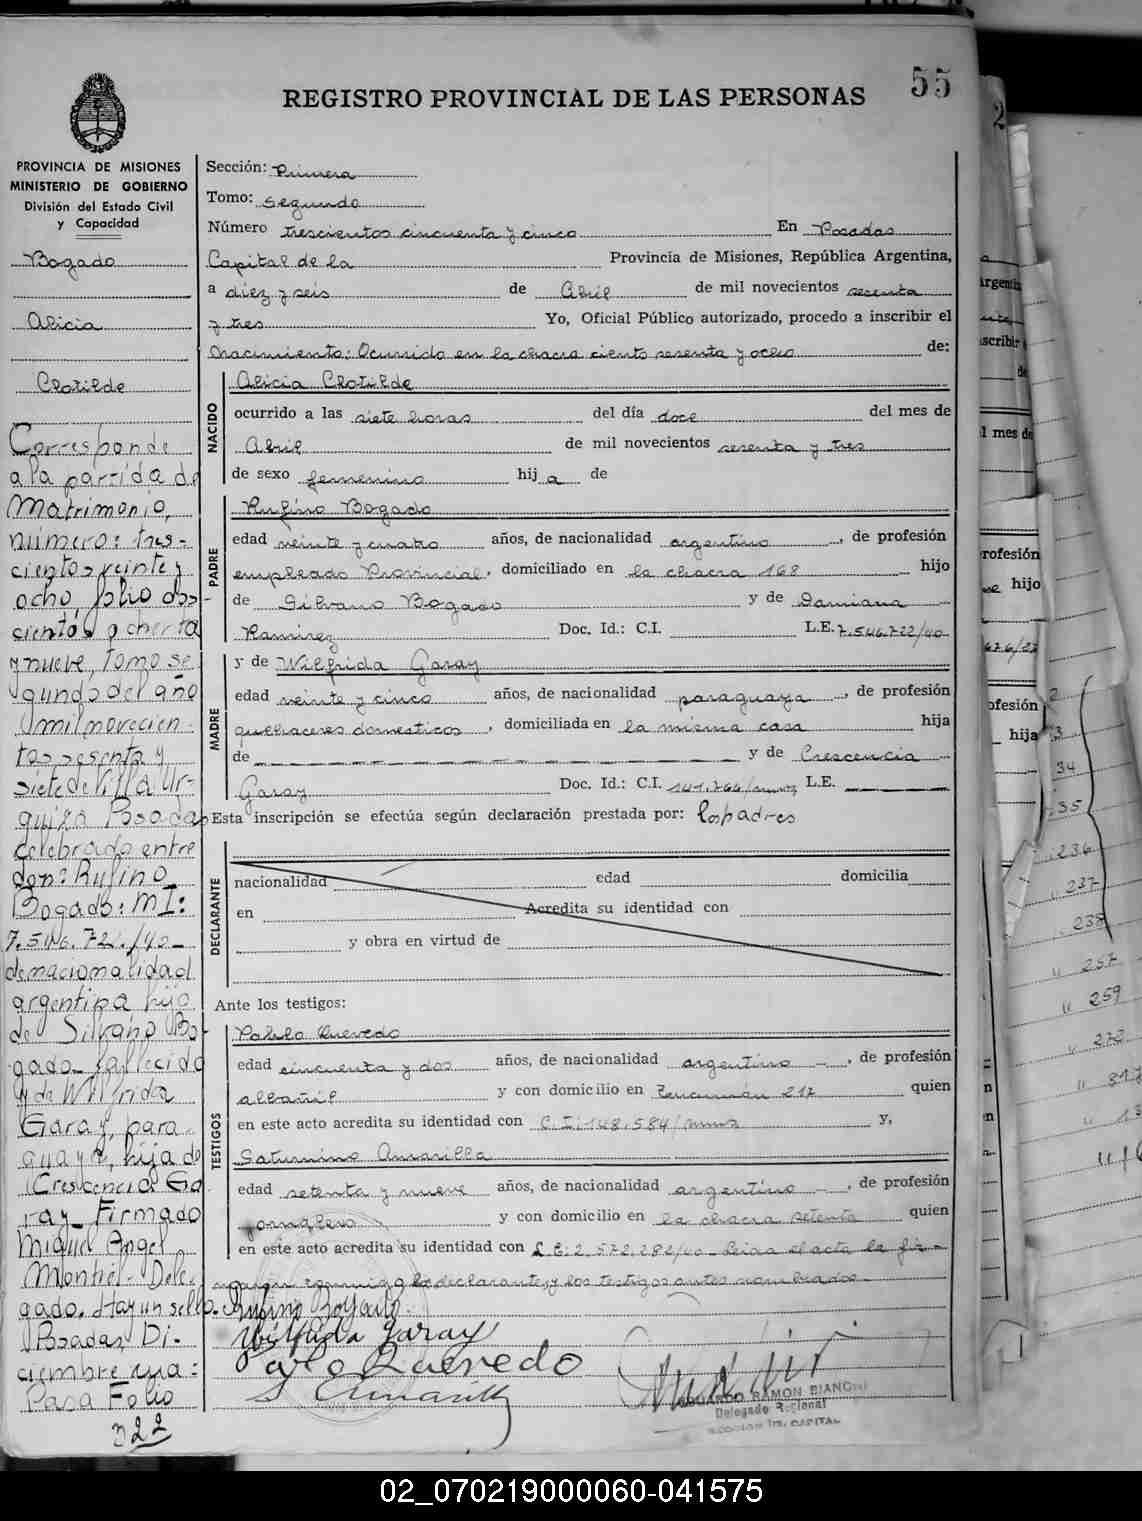 55
REGISTRO PROVINCIAL DE LAS PERSONAS
PROVINCIA DE MISIONES
MINISTERIO DE GOBIERNO
División del Estado Civil
y Capacidad
Bogado
Alicia
Clotilde
Corresponde
a la partida de
Matrimonio,
número: tres-
cientos veinte y
ocho, folio dos-
cientos ochenta
y nueve, Tomo se
gundo del año
mil novecien-
tos sesenta y
siete de Villa Ur-
quiza Posadas
celebrado entre
don: Rufino
Bogado: MI:
7.546.722/40-
de nacionalidad
argentina hijo
de Silvano Bo-
gado fallecido
y de Wilfrida
Garay, para-
guaya, hija de
Crescencia Ga
ray- Firmado
Miguel Angel
Montiel- Dele-
gado. Hay un sello.
Posadas, Di-
ciembre
Pasa Folio
322
Sección: Primera
Tomo: segundo
Número trescientos cincuenta y cinco En Posadas
Capital de la Provincia de Misiones, República Argentina,
a diez y seis de Abril de mil novecientos sesenta
y tres Yo, Oficial Público autorizado, procedo a inscribir el
Nacimiento: Ocurrido en la chacra ciento sesenta y ocho de:
NACIDO
Alicia Clotilde
ocurrido a las siete horas del día doce del mes de
Abril de mil novecientos sesenta y tres
de sexo femenino hij a de
PADRE
Rufino Bogado
edad veinte y cuatro años, de nacionalidad argentino, de profesión
empleado Provincial, domiciliado en la chacra 168 hijo
de Silvano Bogado y de Damiana
Ramirez Doc. Id.: C.I. L.E. 7.546.722/40
MADRE
y de Wilfrida Garay
edad veinte y cinco años, de nacionalidad paraguaya, de profesión
quehaceres domesticos, domiciliada en la misma casa hija
de y de Crescencia
Garay Doc. Id.: C.I. 141.766/mnes L.E.
Esta inscripción se efectúa según declaración prestada por: los padres
DECLARANTE
nacionalidad edad domicilia
en Acredita su identidad con
y obra en virtud de
Ante los testigos:
TESTIGOS
Pablo Quevedo
edad cincuenta y dos años, de nacionalidad argentino -, de profesión
albañil y con domicilio en Tucumán 217 quien
en este acto acredita su identidad con C.I: 148.584/mnes y,
Saturnino Amarilla
edad setenta y nueve años, de nacionalidad argentino -, de profesión
jornalero y con domicilio en la chacra setenta quien
en este acto acredita su identidad con L.E: 2.572.282/40- Leida el acta la fir-
maron conmigo los declarantes y los testigos antes nombrados-
Rufino Bogado
Wilfrida Garay
Pablo Quevedo
S Amarilla
EDUARDO RAMON BIANCHI
Delegado Regional
SECCION 1ra. CAPITAL
02_070219000060-041575